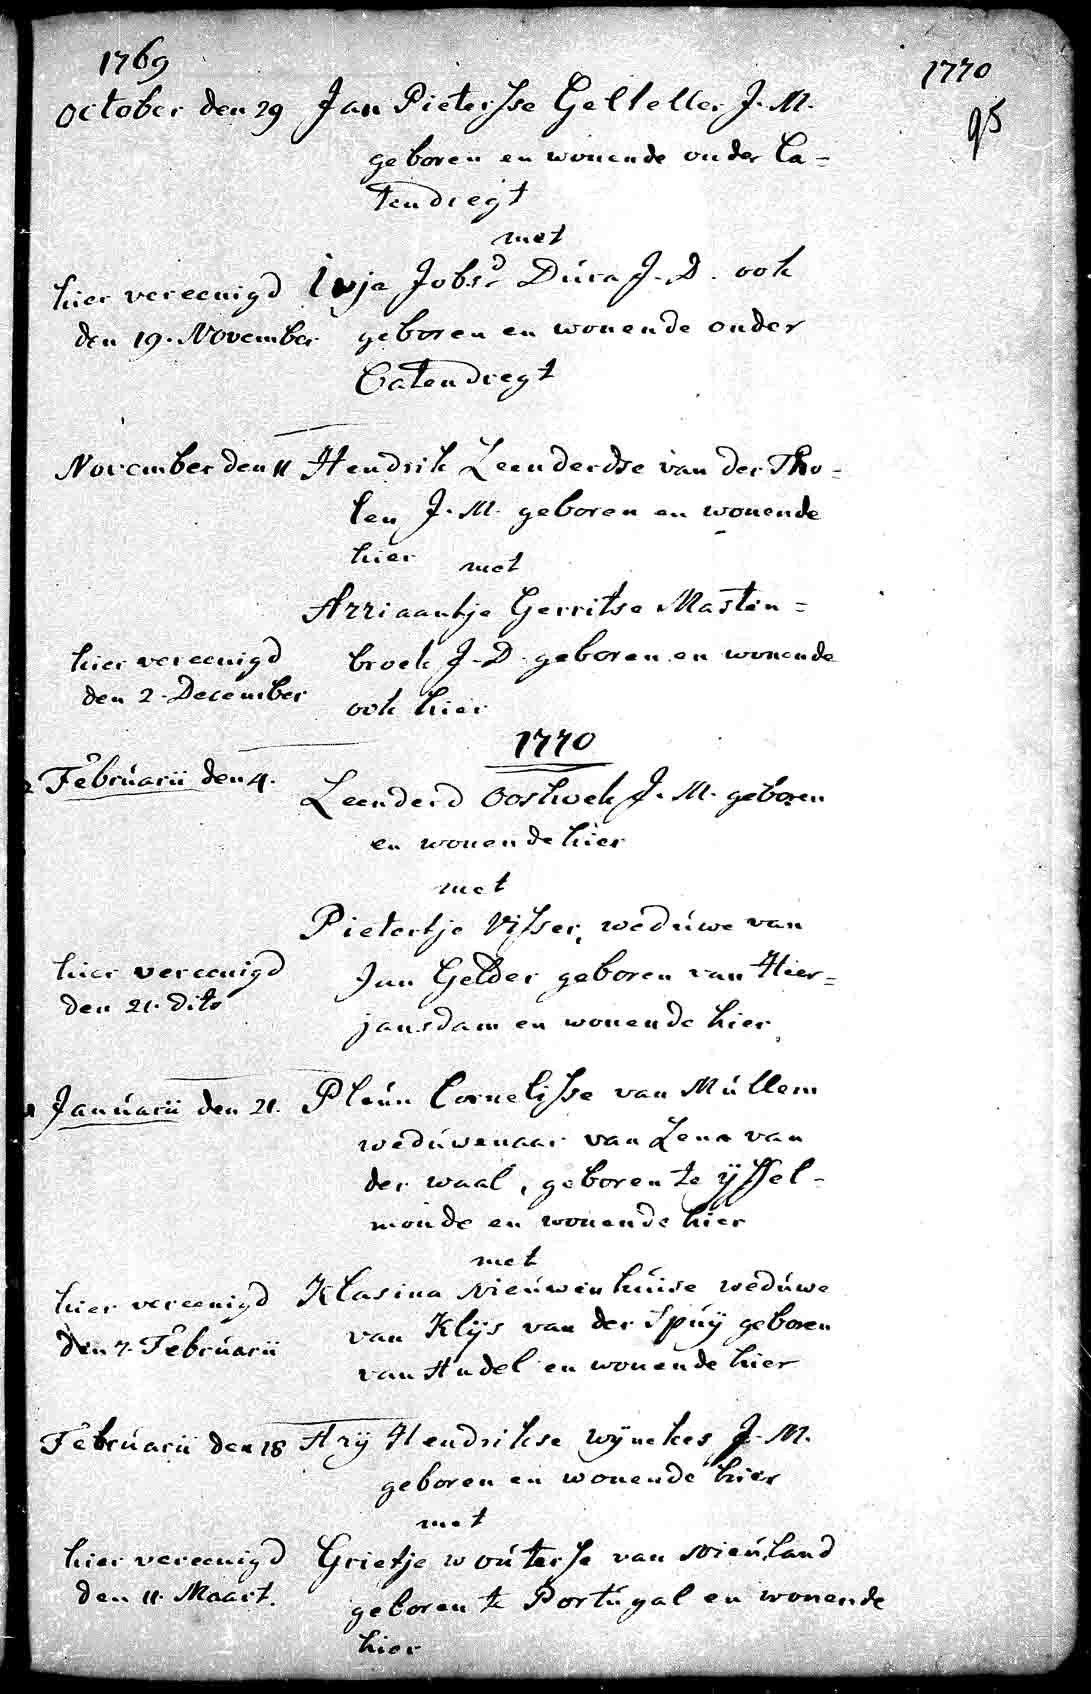 1769
1770
95
October den 29 Jan Pietersse Gelteller J. M.
geboren en wonende onder Ca=
tendregt
met
hier vereenigd
den 19. November
Jobsd Dúra J. D. ook
geboren en wonende onder
Catendregt
November den 11 Hendrik Leenderdse van der Tho=
len J. M. geboren en wonende
hier met
Arriaantje Gerritse Masten=
hier vereenigd
den 2. December
broek J. D. geboren en wonende
ook hier
1770
2 Februarii den 4. Leenderd Oosthoek J. M. geboren
en wonende hier
met
Pietertje Visser, wedúwe van
hier vereenigd
den 21. dito
Jan Gelder geboren van Hier=
jansdam en wonende hier,
1 Janúarii den 21. Pleún Cornelisse van Múllem
wedúwenaar van Lena van
der waal, geboren te ÿssel=
monde en wonende hier
met
hier vereenigd
den 7. Februarii
Klasina Nieúwenhúise wedúwe
van Klijs van der Spúÿ geboren
van Andel en wonende hier
Februarii den 18 Arÿ Hendrikse wÿnekes J. M.
geboren en wonende hier
met
hier vereenigd
den 11. Maart.
Grietje woúterse van Nieúland
geboren te Portúgal en wonende
hier